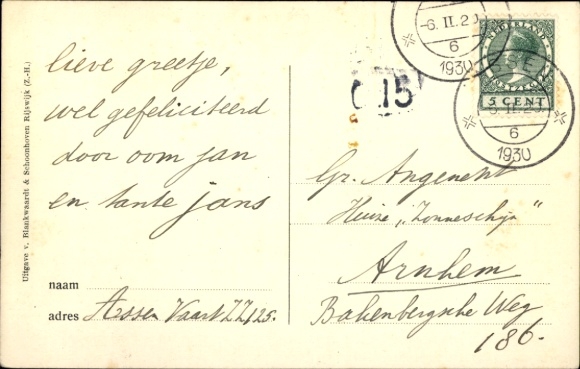 lieve greetje,
wel gefeliciteerd
door oom jan
en tante jans
naam
adres Assen Vaart ZZ 125.
Uitgave v. Blankwaardt & Schoonhoven Rijswijk (Z.-H.)
-6.II.20
6
1930
NEDERLAND
5 CENT
SSEN
6
1930
15
Gr. Angenent
Huize „Zonneschijn"
Arnhem
Bakenbergsche Weg
186.